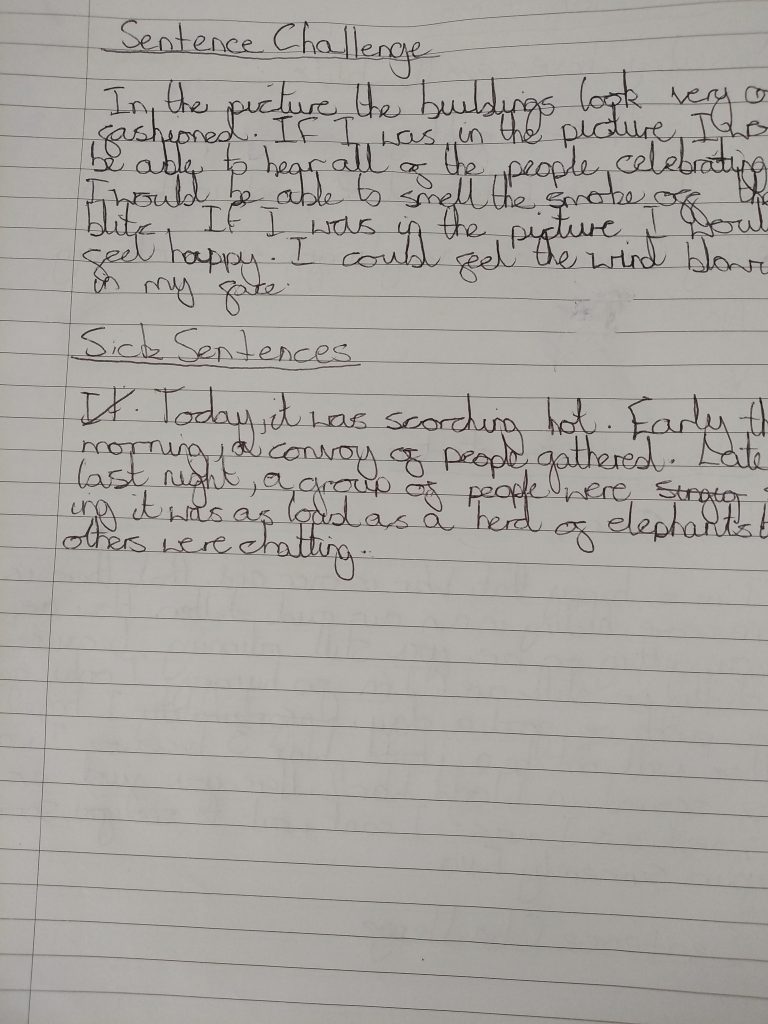 Sentence Challenge
In the picture the buildings look very
fashioned. If I was in the picture I
be able to hear all of the people celebrating
I would be able to smell the smoke off the
blitz. If I was in the picture I woul
feel happy. I could feel the wind blow
in my fate.
Sick Sentences
It. Today, it was scorching hot. Early th
morning, a convoy of people gathered. Late
last night, a group of people were
ing it was as loud as a herd of elephants
others were chatting.